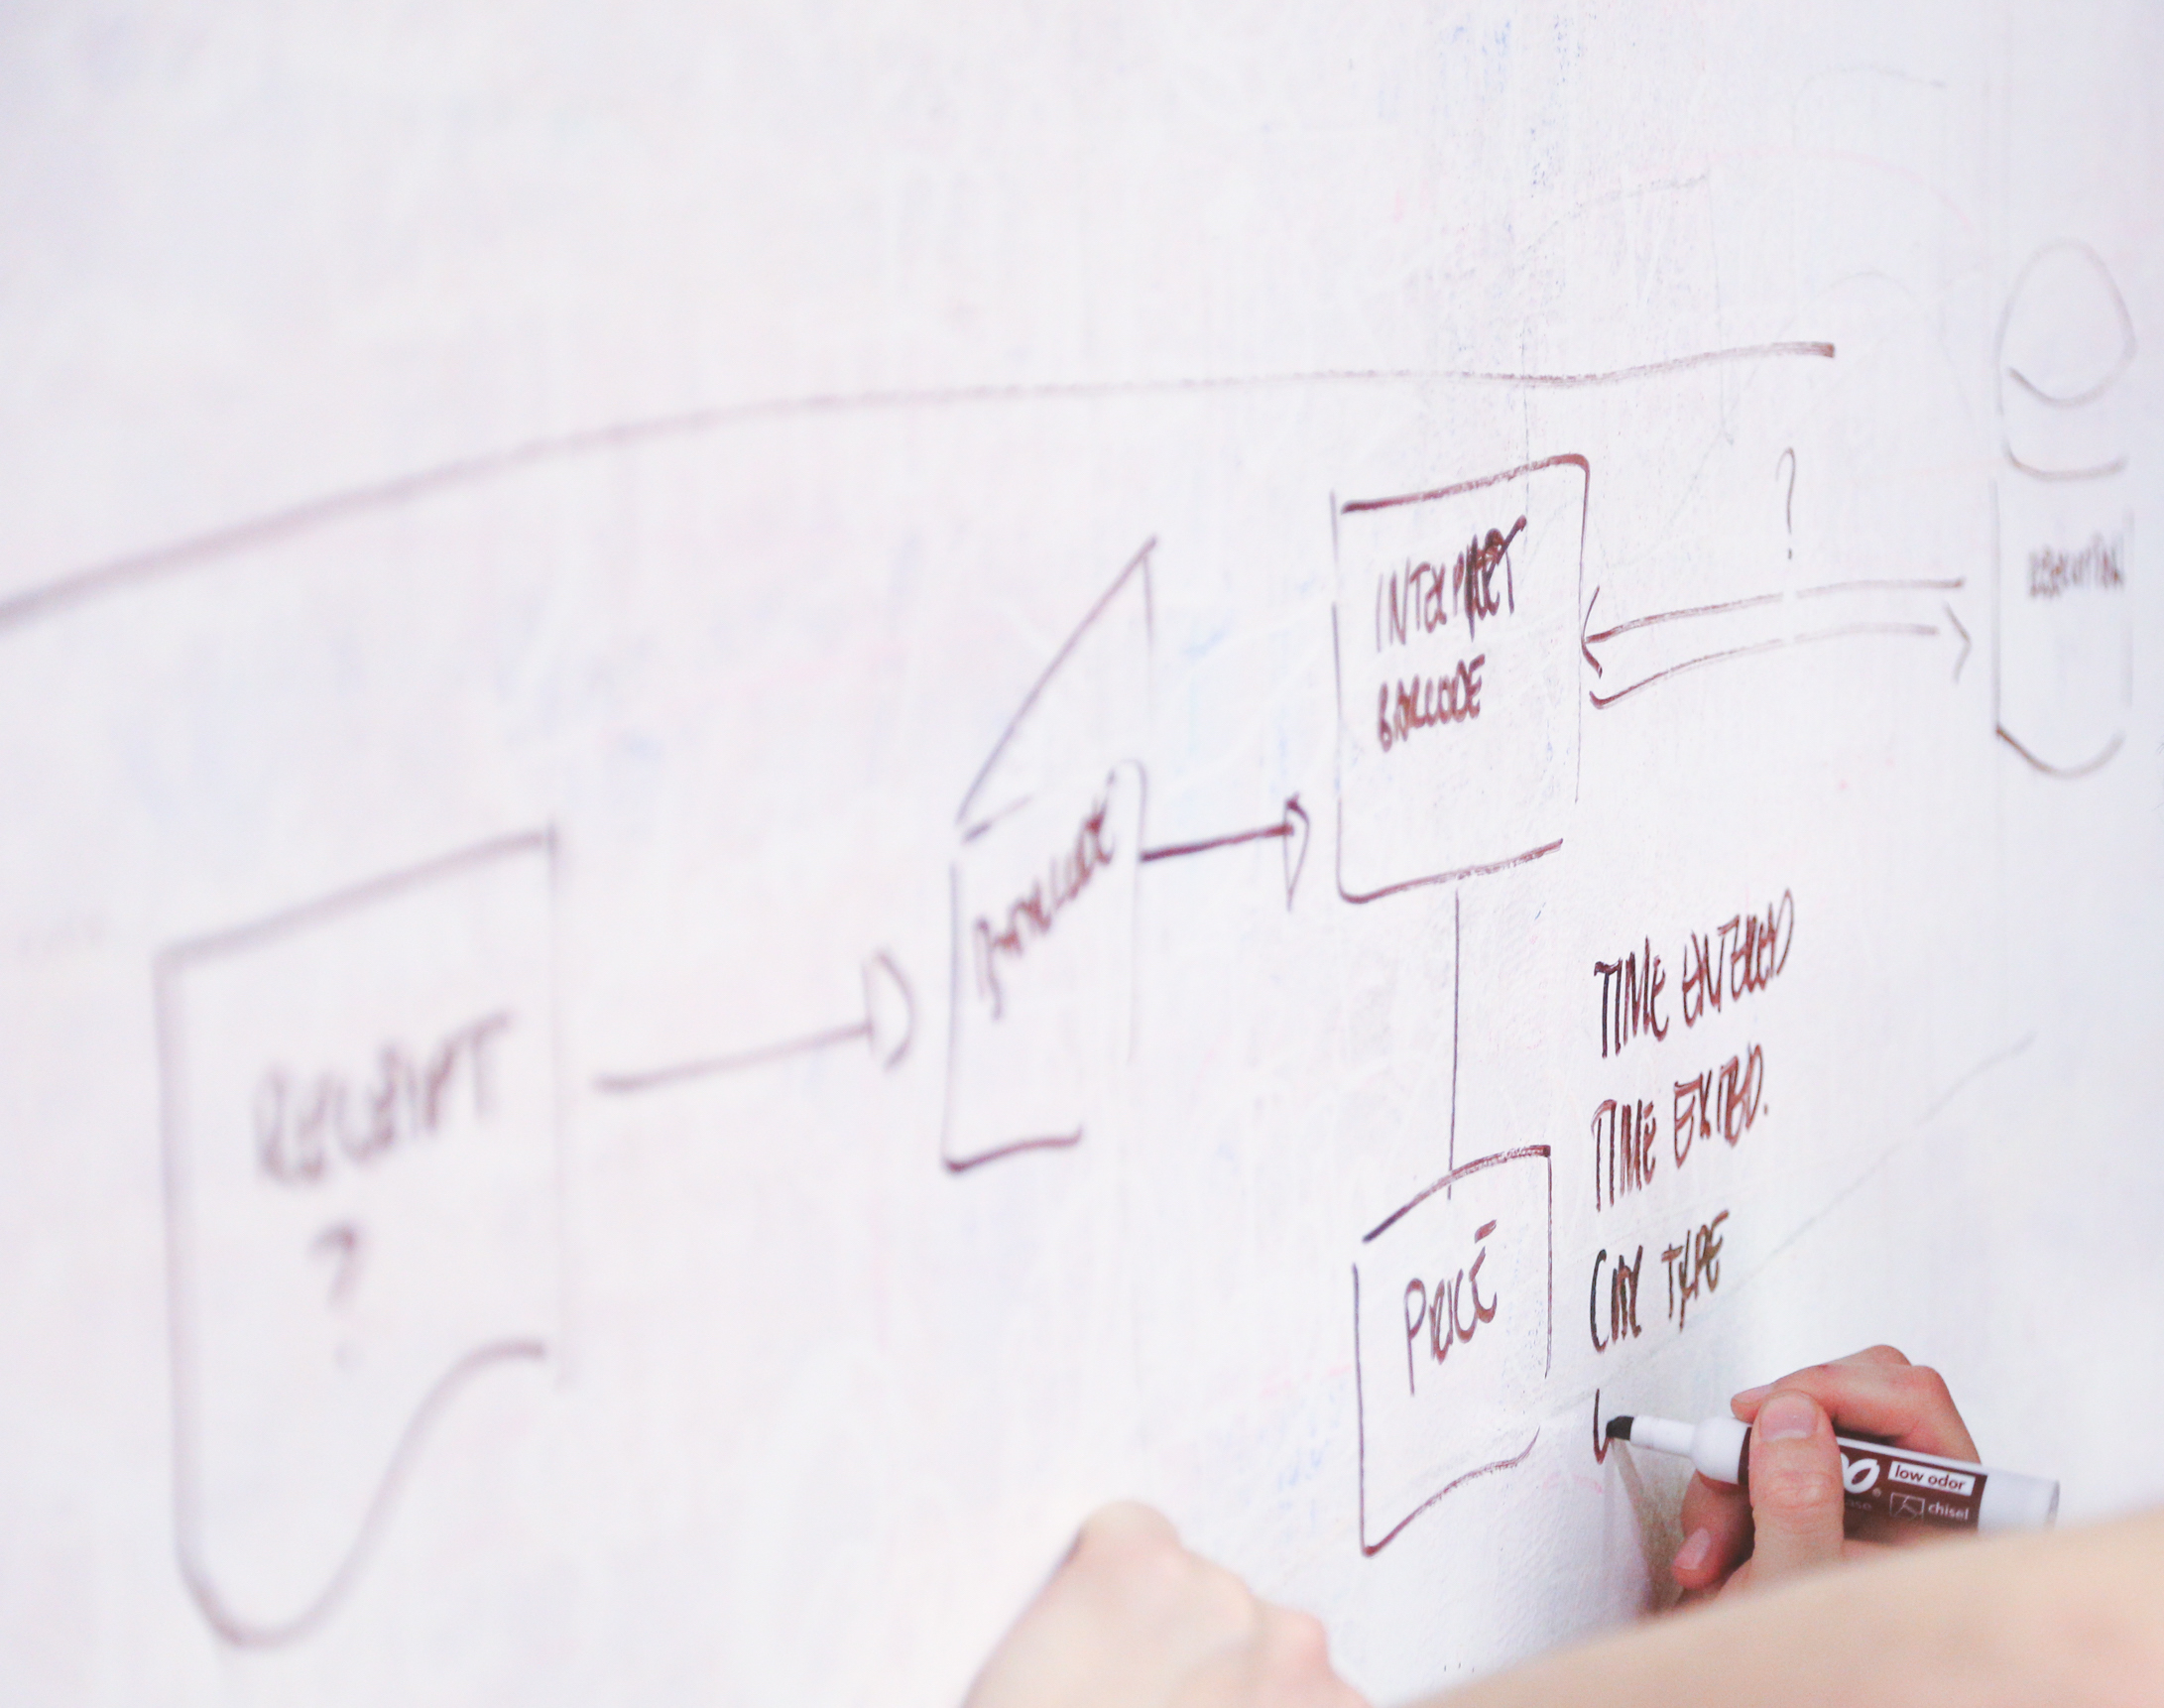 RECEIPT
?
BARCODE
INTERPRET
BARCODE
?
PRICE
TIME ENTERED
TIME EXITED.
CAR TYPE
low odor
chisel